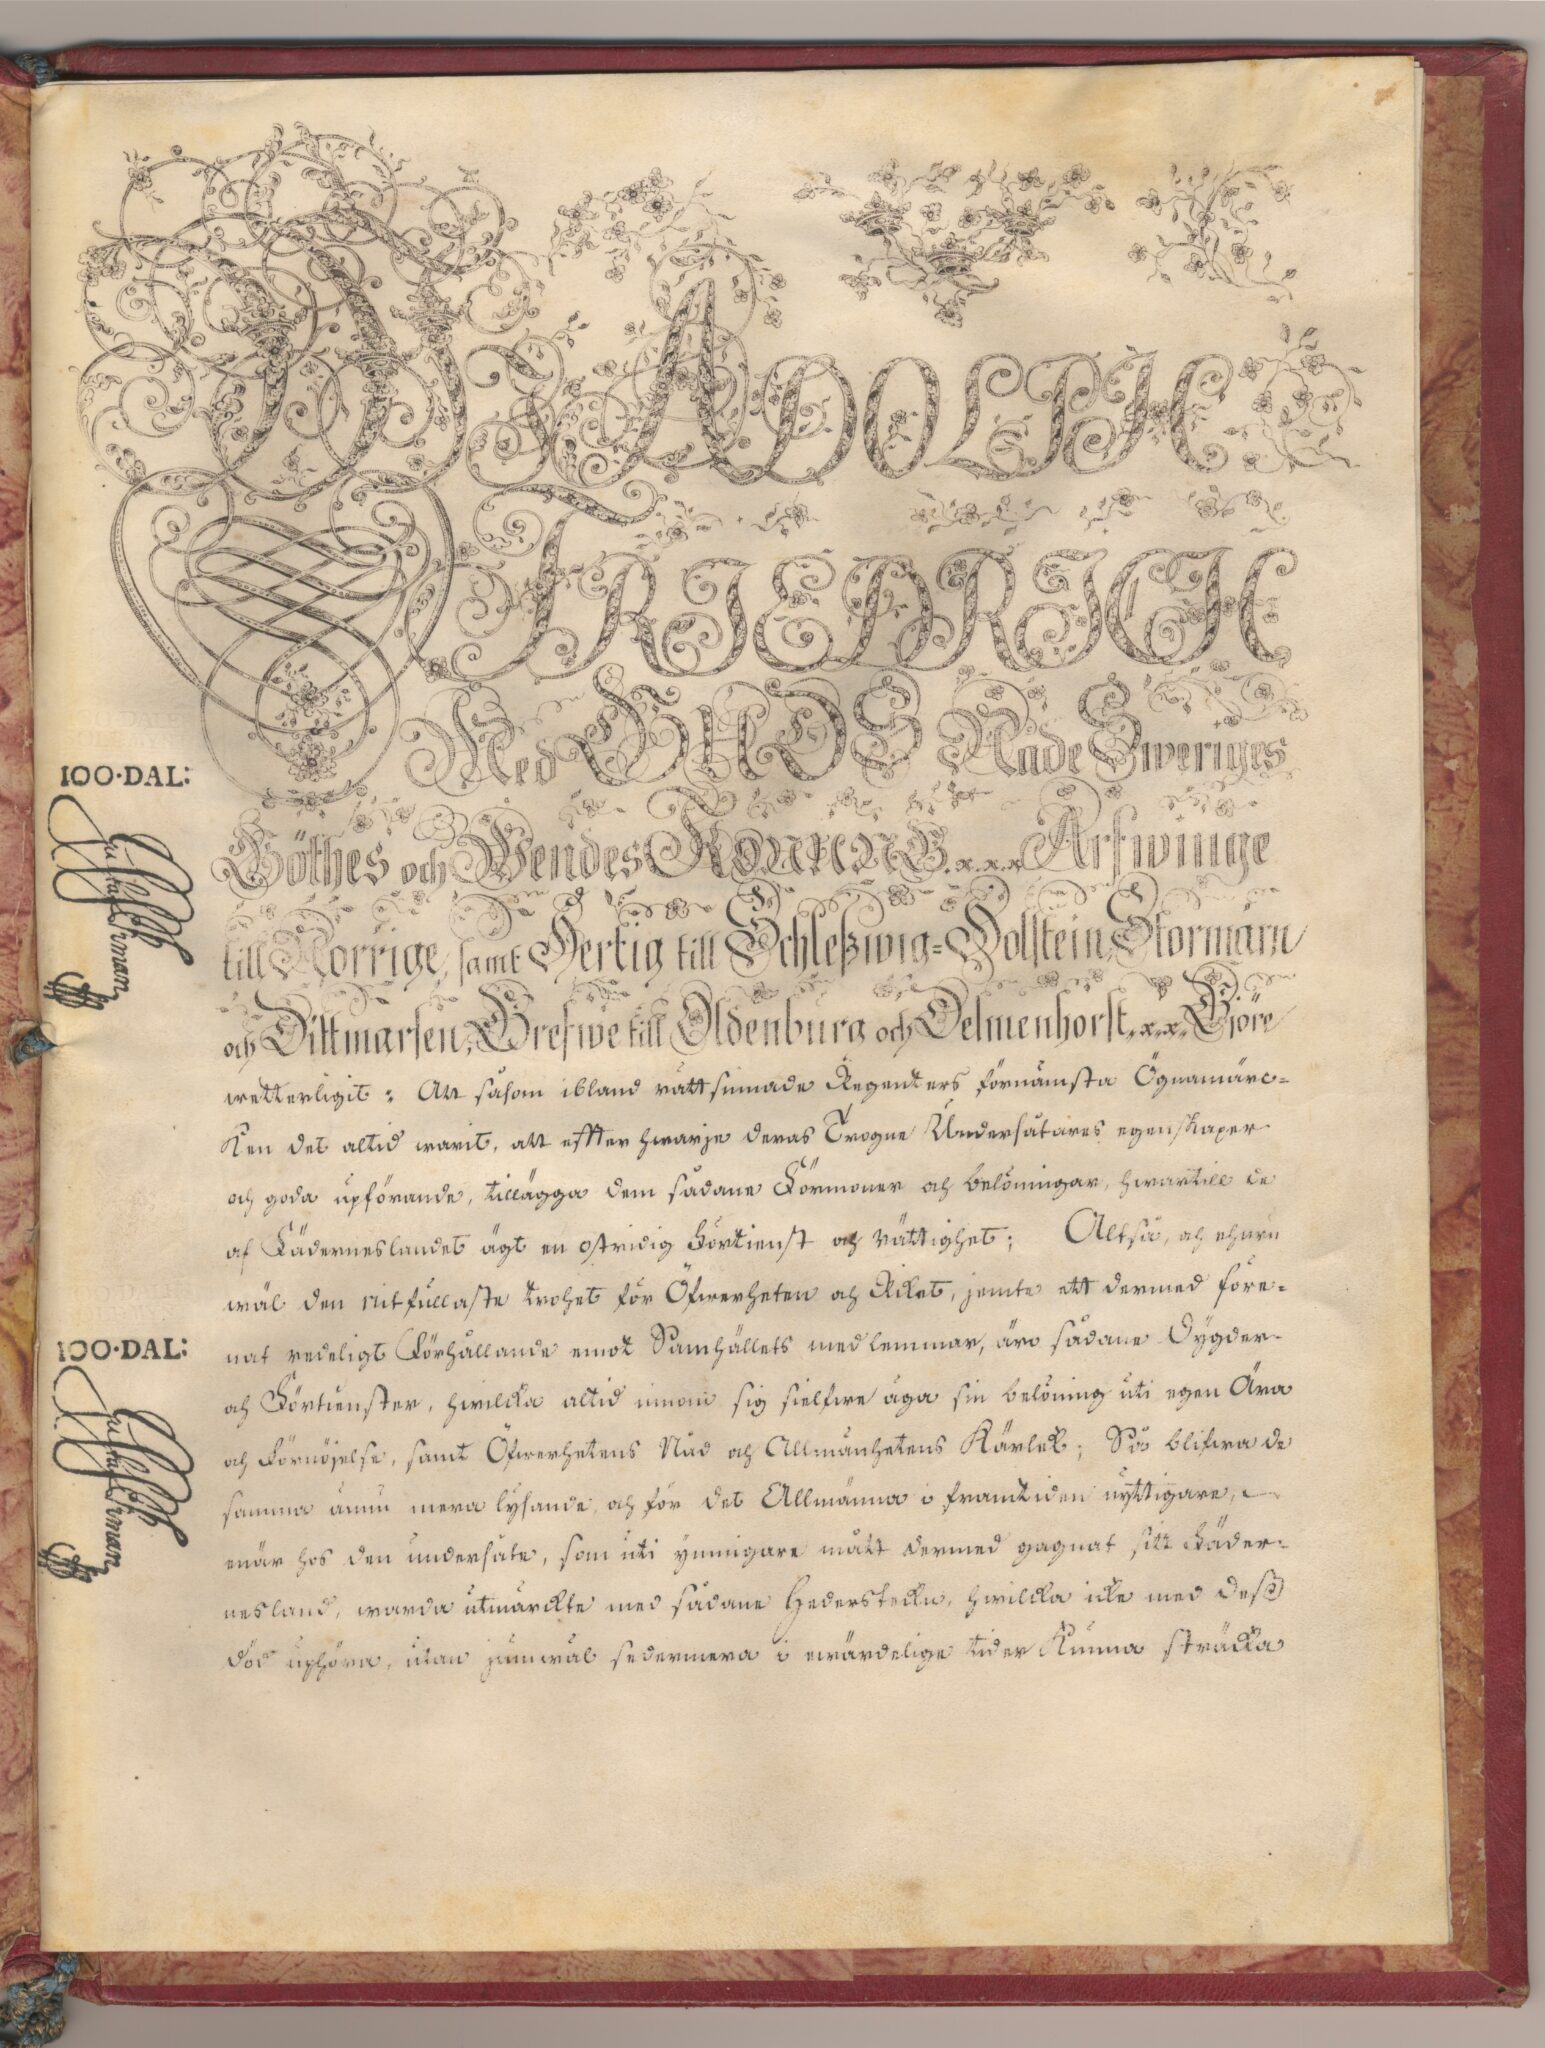 Wi ADOLPH
FRIEDRICH
Med GUDS Nåde Sweriges
Göthes och Wendes KONUNG. x.x.x. Arfwinge
till Norrige, samt Hertig till Schleßwig-Holstein, Stormarn
och Dittmarsen, Grefwe till Oldenburg och Delmenhorst, x.x. Giöre
wetterligit: Att såsom ibland rättsinnade Regenters förnämsta Ögnamärc-
ken det altid warit, att effter hwarje deras Trogne Undersåtares egenskaper
och goda upförande, tillägga dem sådane Förmoner och belöningar, hwartill de
af Fäderneslandet ägt en ostridig Förtienst och rättighet; Altså, och ehuru
wäl den nitfullaste trohet för Öfwerheten och Riket, jemte ett dermed före-
nat redeligt Förhållande emot Samhällets medlemmar, äro sådane Dygder
och Förtienster, hwilcka altid innom sig sielfwe äga sin belöning uti egen Ära
och Förnöjelse, samt Öfwerhetens Nåd och Allmänhetens Kärlek; Så blifwa de
samma ännu mera lysande, och för det Allmänna i framtiden nyttigare,
enär hos den undersåte, som uti ymnigare mått dermed gagnat sitt Fäder-
nesland, warda utmärckte med sådane Hedersteckn, hwilcka icke med deß
död uphöra, utan jemwäl sedermera i ewärdelige tider kunna sträcka
100·DAL:
100·DAL: